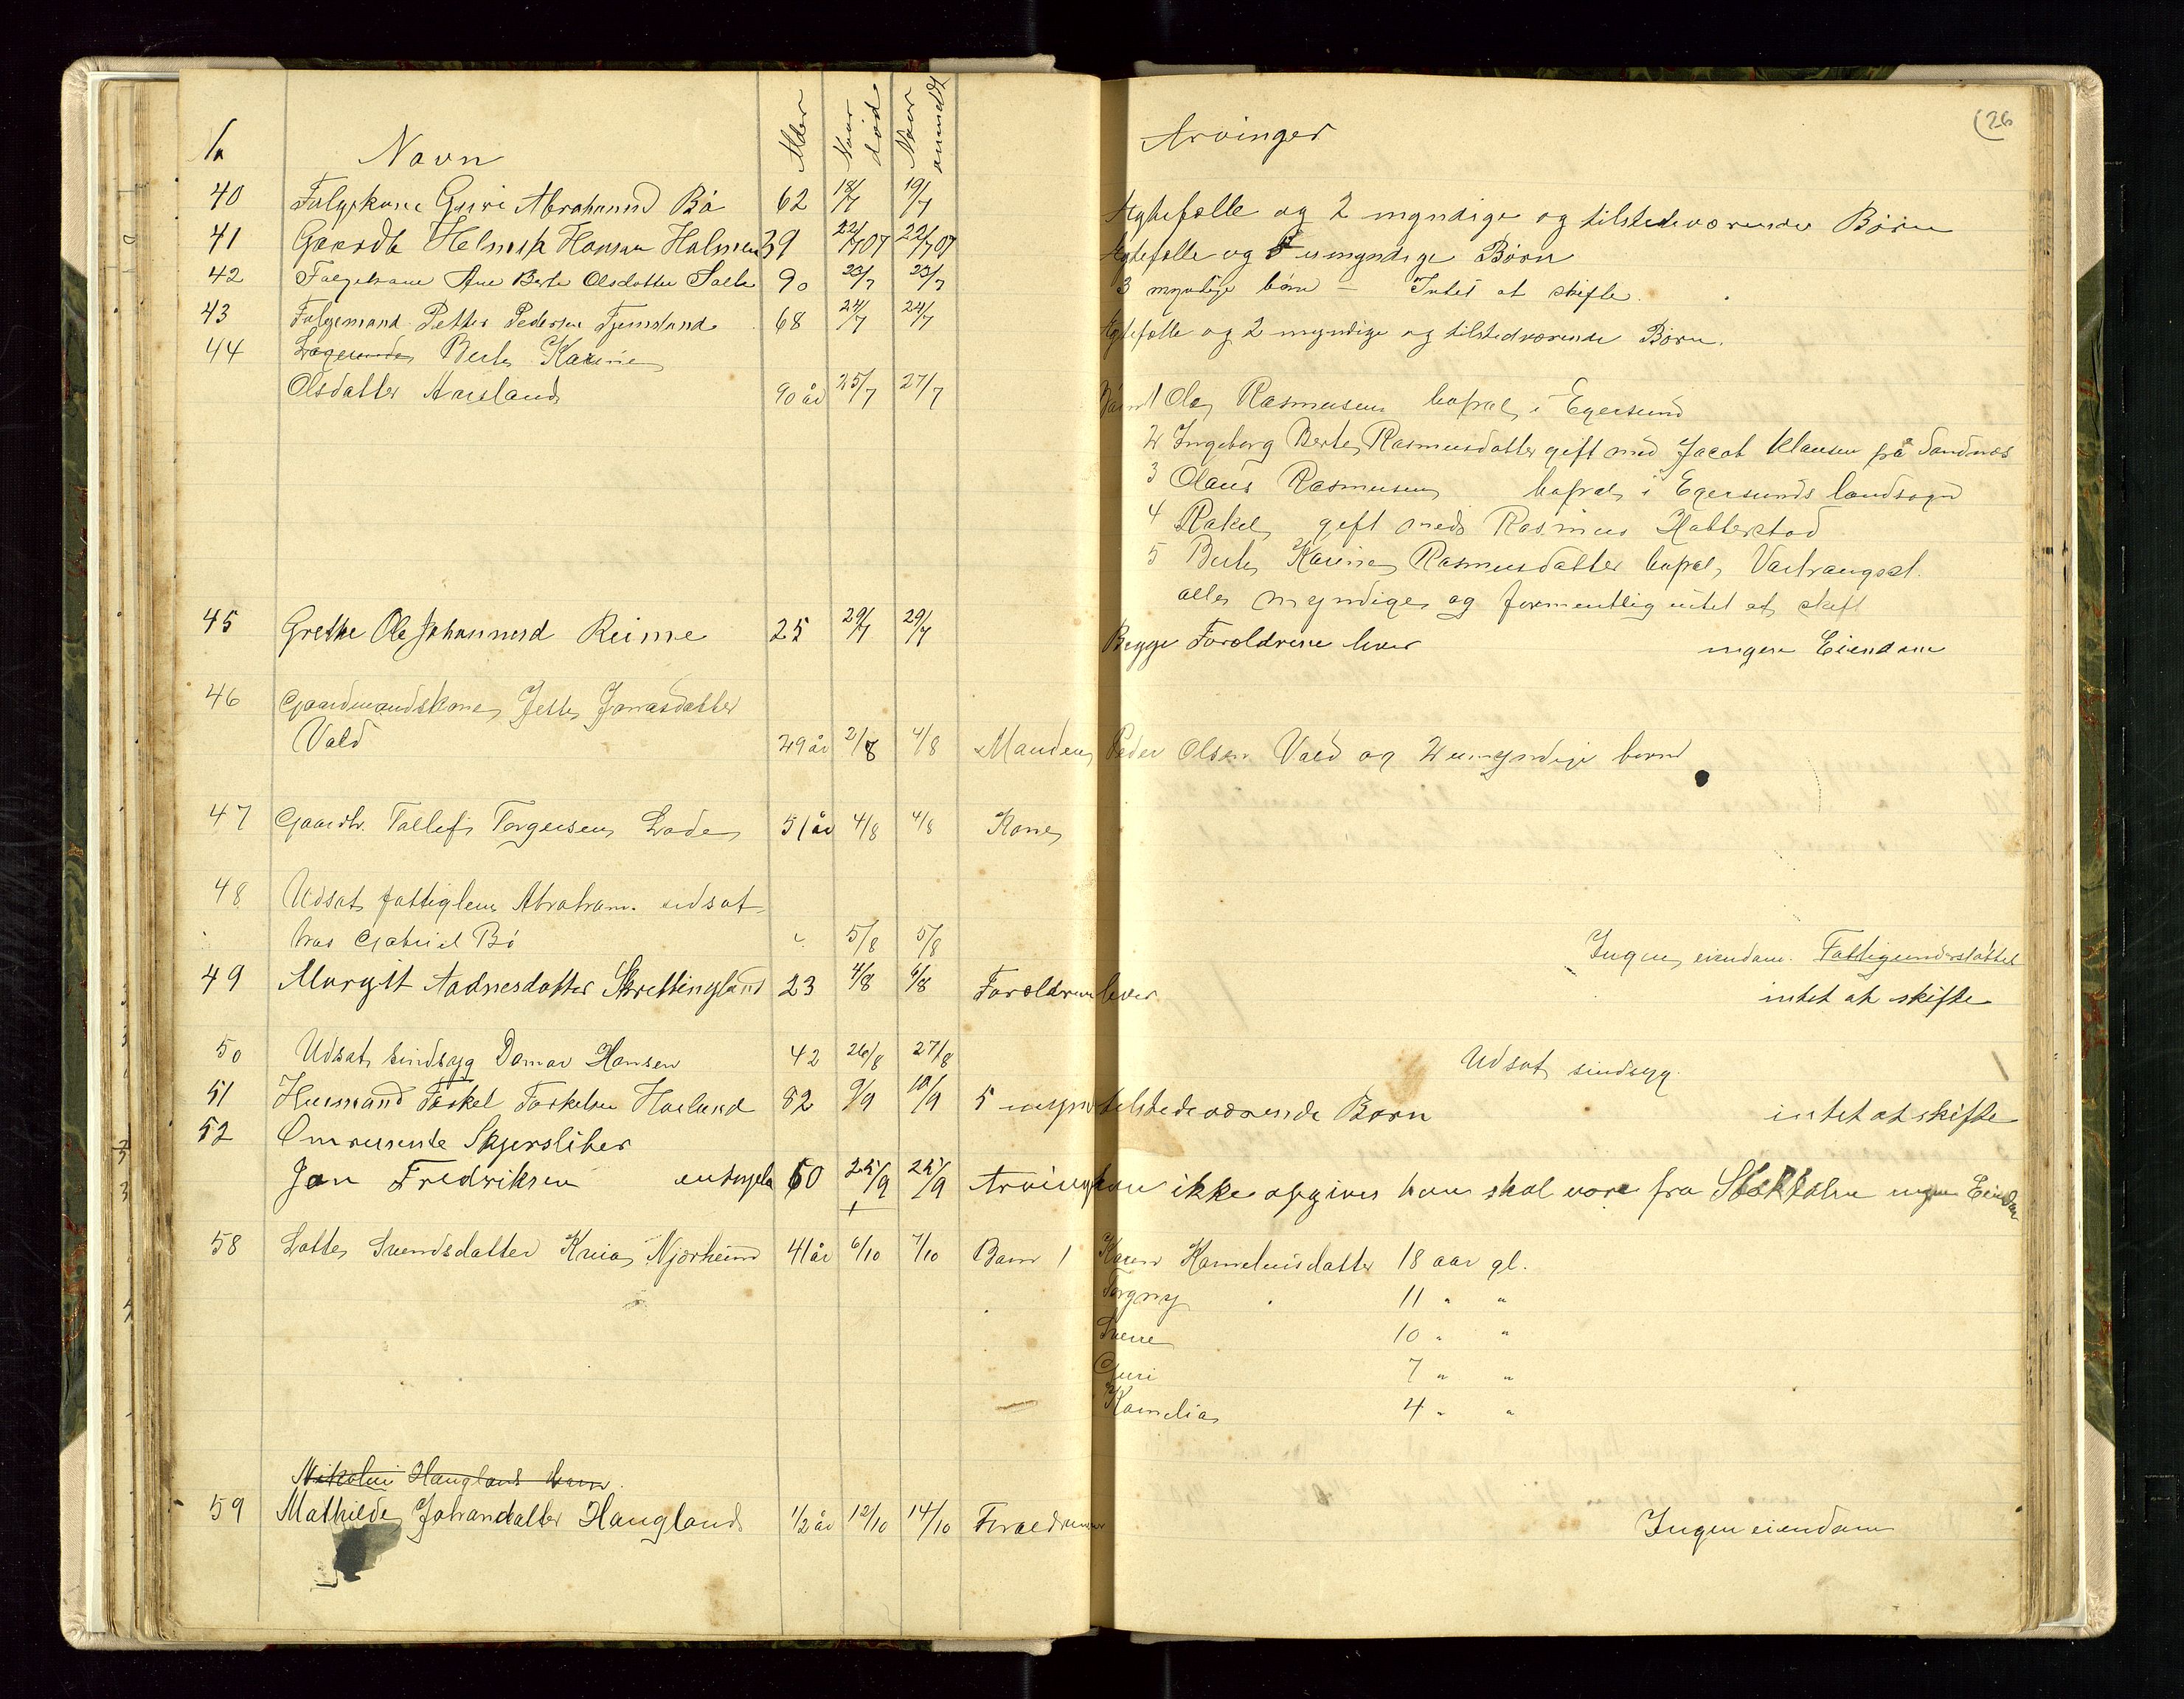 (26
Navn Alder Naar død Naar anmeldt Arvinger
40 Folgekone Guri Abrahamsd Bö 62 18/7 19/7 Ægtefælle og 2 myndige og tilstedeværende Börn
41 Gaardb Helmik Hansen Holmen 39 22/7 07 22/7 07 Ægtefælle og umyndige Börn
42 Folgekone Ane Berte Olsdatter Salte 90 23/7 23/7 3 myndige börn – Intet at skifte.
43 Folgemand Petter Pedersen 68 24/7 24/7 Ægtefælle og 2 myndige og tilstedværende Börn.
44 Berte Karine
Olsdatter Aarsland 90 år 25/7 27/7 Børn 1 Ole Rasmusen bopæl i Egersund
2 Ingeborg Berte Rasmusdatter gift med Jacob Klausen på Sandnes
3 Olaus Rasmusen bopæl i Egersunds landsogn
4 Rakel gift med Rasmus Hatterstad
5 Berte Karine Rasmusdatter bopæl,
alle myndige og formentlig intet at skift
45 Grethe Ole Johannesd Reime 25 29/7 29/7 Begge Foræeldrene lever ingen Eiendom
46 Gaardmandskone Jette Jonasdatter
Vald 29 år 2/8 4/8 Manden Peder Olsen Vald og 2 umyndige børn
47 Gaardb. Tollef Torgersen Lode 51 år 4/8 4/8 Kone
48 Udsat fattiglem Abraham udsat
hos Gabriel Bö 5/8 5/8 Ingen eiendom. Fattigunderstöttet
49 Margit Aadnesdatter Skrettingland 23 4/8 6/8 Foreldrene lever intet at skifte
50 Udsat sindsyg Domar Hansen 42 26/8 27/8 Udsat sindsyg.
51 Husmand Torkel Torkelsen Hovland 82 9/9 10/9 5 tilstedeværende Børn intet at skifte
52 Omreisende Skjersliber
Jon Fredriksen 60 25/9 25/9 Arving kan ikke opgives han skal vare fra Stokholm ingen Eiendom
58 Lotte Svendsdatter Njærheim 41 år 6/10 7/10 Barn 1 Karen Korneliusdatter 18 aar gl.
Torgny 11 " "
Sverre 10 " "
Guri 7 " "
Kornelia 4 " "
Nikolai Hauglands barn.
59 Mathilde Johandatter Haugland 1/2 år 12/10 14/10 Foraeldrene Ingen eiendom